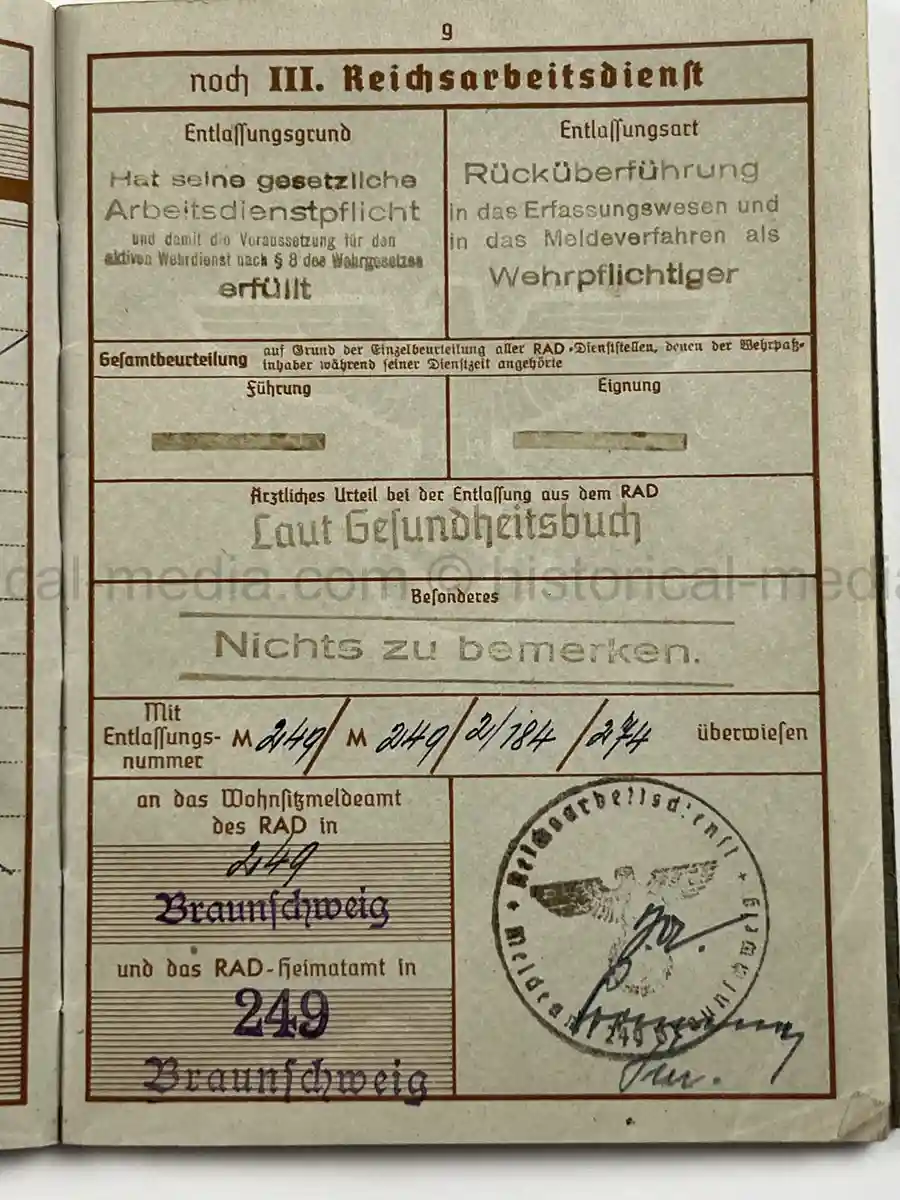 9
noch III. Reichsarbeitsdienst
Entlassungsgrund
Hat seine gesetzliche
Arbeitsdienstpflicht
und damit die Voraussetzung für den
aktiven Wehrdienst nach § 8 des Wehrgesetzes
erfüllt
Entlassungsart
Rücküberführung
in das Erfassungswesen und
in das Meldeverfahren als
Wehrpflichtiger
Gesamtbeurteilung auf Grund der Einzelbeurteilung aller RAD-Dienststellen, denen der Wehrpaß-
inhaber während seiner Dienstzeit angehörte
Führung
Eignung
Ärztliches Urteil bei der Entlassung aus dem RAD
Laut Gesundheitsbuch
cal-media.com © historical-media
Besonderes
Nichts zu bemerken.
Mit
Entlassungs-
nummer
M 249/ M 249/2/184/274 überwiesen
an das Wohnsitzmeldeamt
des RAD in
249
Braunschweig
und das RAD-Heimatamt in
249
Braunschweig
Reichsarbeitsdienst
Meldeamt 249 Braunschweig